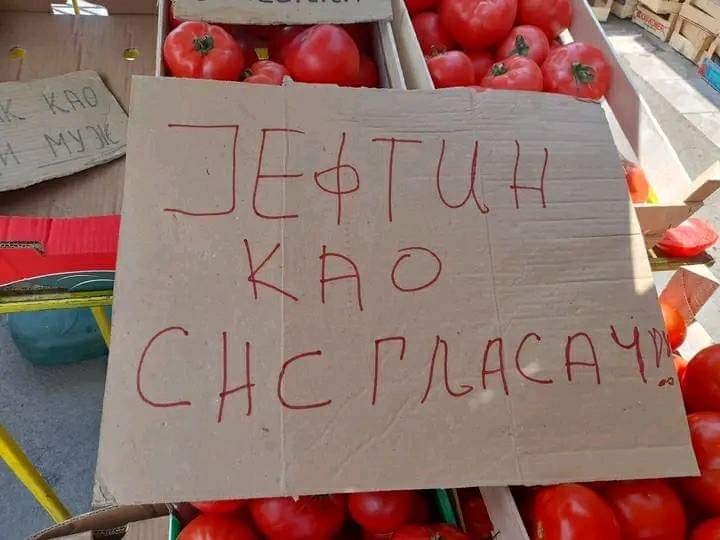 К КАО
И МУЖ
ЈЕФТИН
КАО
СНС ГЛАСАЧ!!!